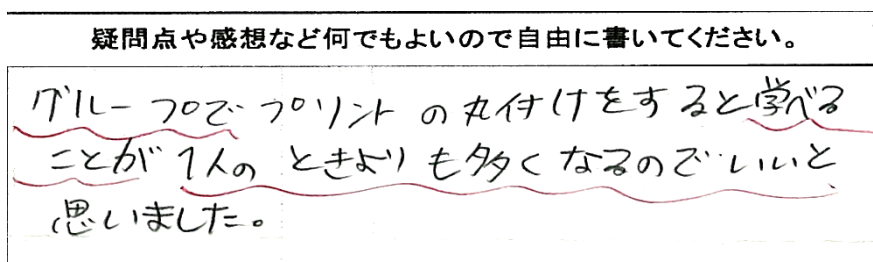 疑問点や感想など何でもよいので自由に書いてください。
グループでプリントの丸付けをすると学べる
ことが1人のときよりも多くなるのでいいと
思いました。